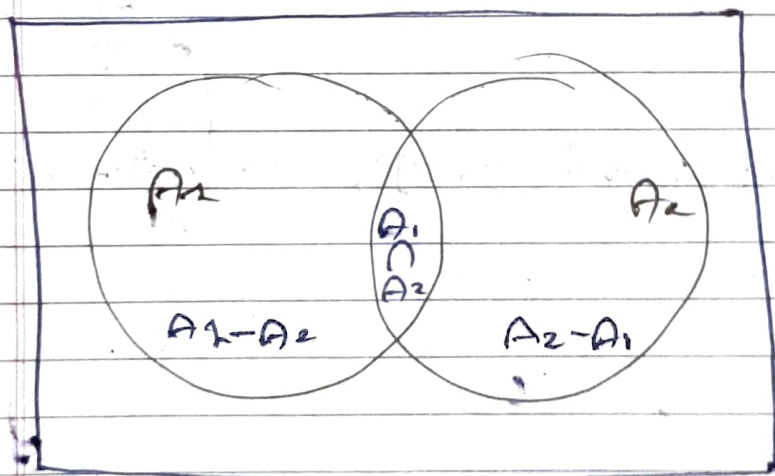 A1
A2
A1
∩
A2
A1-A2
A2-A1